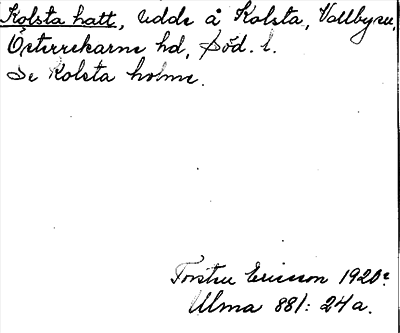 Kolsta hatt, udde å Kolsta, Vallby sn,
Österrekarne hd, Söd. l.
Se Kolsta holme.
Torsten Ericsson 1920?
Ulma 881: 24a.